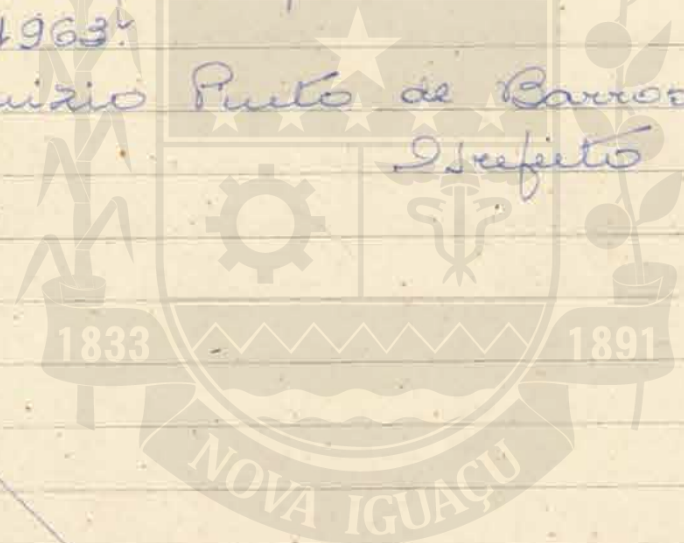 1963.
uizio Pinto de Barros
Prefeito
1833
1891
NOVA IGUAÇU